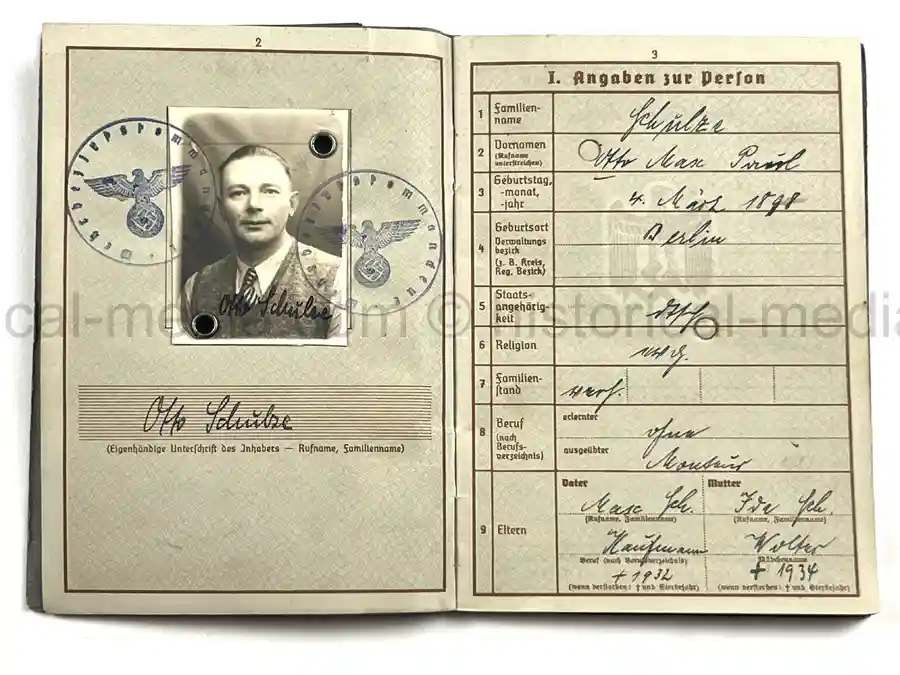 2
Otto Schulze
Otto Schulze
(Eigenhändige Unterschrift des Inhabers — Rufname, Familienname)
3
I. Angaben zur Person
1 Familien-
name
Schulze
2 Vornamen
(Rufname
unterstreichen)
Otto Max Paul
3 Geburtstag,
-monat,
-jahr
4. März 1898
4 Geburtsort
Verwaltungs
bezirk
(z. B. Kreis,
Reg. Bezirk)
Berlin
5 Staats-
angehörig-
keit
dtsch.
6 Religion
7 Familien-
stand
verh.
8 Beruf
(nach
Berufs-
verzeichnis)
erlernter
ohne
ausgeübter
Monteur
9 Eltern
Vater Mutter
Max Sch. Ida Sch.
(Rufname, Familienname) (Rufname, Familienname)
Kaufmann Wolter
Beruf (nach Berufsverzeichnis) Mädchenname
† 1932 † 1934
(wenn verstorben: † und Sterbejahr) (wenn verstorben: † und Sterbejahr)
cal-media.com © historical-media